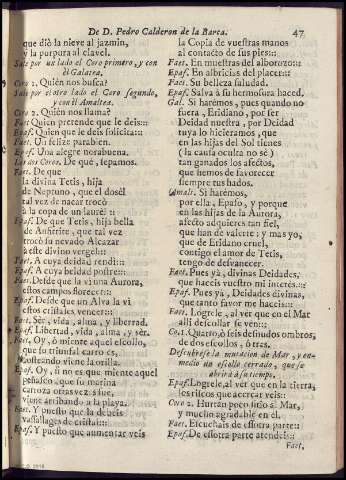 De D. Pedro Calderon de la Barca. 47
que diò la nieve al jazmin,
y la purpura al clavel.
Sale por un lado el Coro primero, y con
èl Galatea.
Coro 1. Quièn nos busca?
Sale por el otro lado el Coro segundo,
y con èl Amaltea.
Coro 2. Quièn nos llama?
Faet. Quien pretende que le deis:::
Epaf. Quien que le deis solicita:::
Faet. Un felize parabien.
Epaf. Una alegre norabuena.
Los dos Coros. De què, sepamos.
Faet. De que
la divina Tetis, hija
de Neptuno, que el dosèl
tal vez de nacar trocò
à la copa de un laurèl ::
Epaf. De que Tetis, hija bella
de Anfitrite, que tal vez
trocò su nevado Alcazar
à este divino vergèl::
Faet. A cuya deidad rendì:::
Epaf. A cuya beldad postrè:::
Faet. Desde que la vì una Aurora,
estos campos florecer::
Epaf. Desde que un Alva la vì
estos cristales vencer::
Faet. Sèr, vida, alma, y libertad.
Epaf. Libertad, vida, alma, y sèr.
Faet. Oy, ò miente aquel escollo,
que su triunfal carro es,
 viene la orilla.
Epaf. Oy, si no es que miente aquel
peñasco, que su marina
carroza otras vezes fue,
viene arribando à la playa.
Faet. Y puesto que la debeis
vassallages de cristal:::
Epaf. Y puesto que aumentar veis
la Copia de vuestras manos
al contacto de sus pies:::
Faet. En muestras del alborozo:::
Epaf. En albricias del placer:::
Faet. Su belleza saludad.
Epaf. Salva à su hermosura haced.
Gal. Si harèmos, pues quando no
fuera, Eridano, por ser
Deidad nuestra, por Deidad
tuya lo hicieramos, que
en las hijas del Sol tienes
(la causa oculta no sè)
tan ganados los afectos,
que hemos de favorecer
siempre tus hados.
Amalt. Si harèmos,
por ella, Epafo, y porque
en las hijas de la Aurora,
afecto adquieres tan fiel,
que han de valerte; y mas yo,
que de Eridano cruel,
contigo el amor de Tetis,
tengo de desvanecer.
Faet. Pues yà, divinas Deidades,
que haceis vuestro mi interès:::
Epaf. Pues yà, Deidades divinas,
que tanto favor me haceis:::
Faet. Logrele, al ver que en el Mar
allì descollar se ven::
Co. 1. Quatro, ò seis desnudos ombros,
de dos escollos, ò tres.
Descubrese la mutacion de Mar, y en
medio un escollo cerrado, que se
abrirà à su tiempo.
Epaf. Logrele, al ver que en la tierra,
los riscos que acercar veis:
Coro 2. Hurtan poco sitio al Mar,
y mucho agradable en èl.
Faet. Escuchais de essotra parte::
Epaf. De essotra parte atendeis::
Faet.